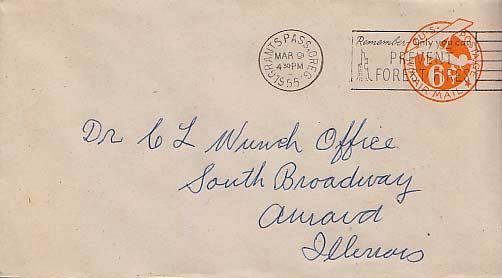 GRANTS PASS, OREG.
MAR 9
4 30 PM
1955
Remember-Only you can
PREVENT
FOREST
U.S. POSTAGE
6¢
AIR MAIL
Dr C L Wunch Office
South Broadway
Illinois